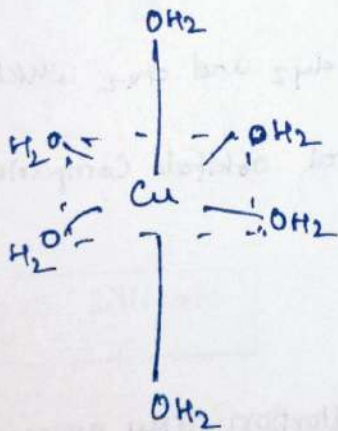 OH2
H2O OH2
Cu
H2O OH2
OH2